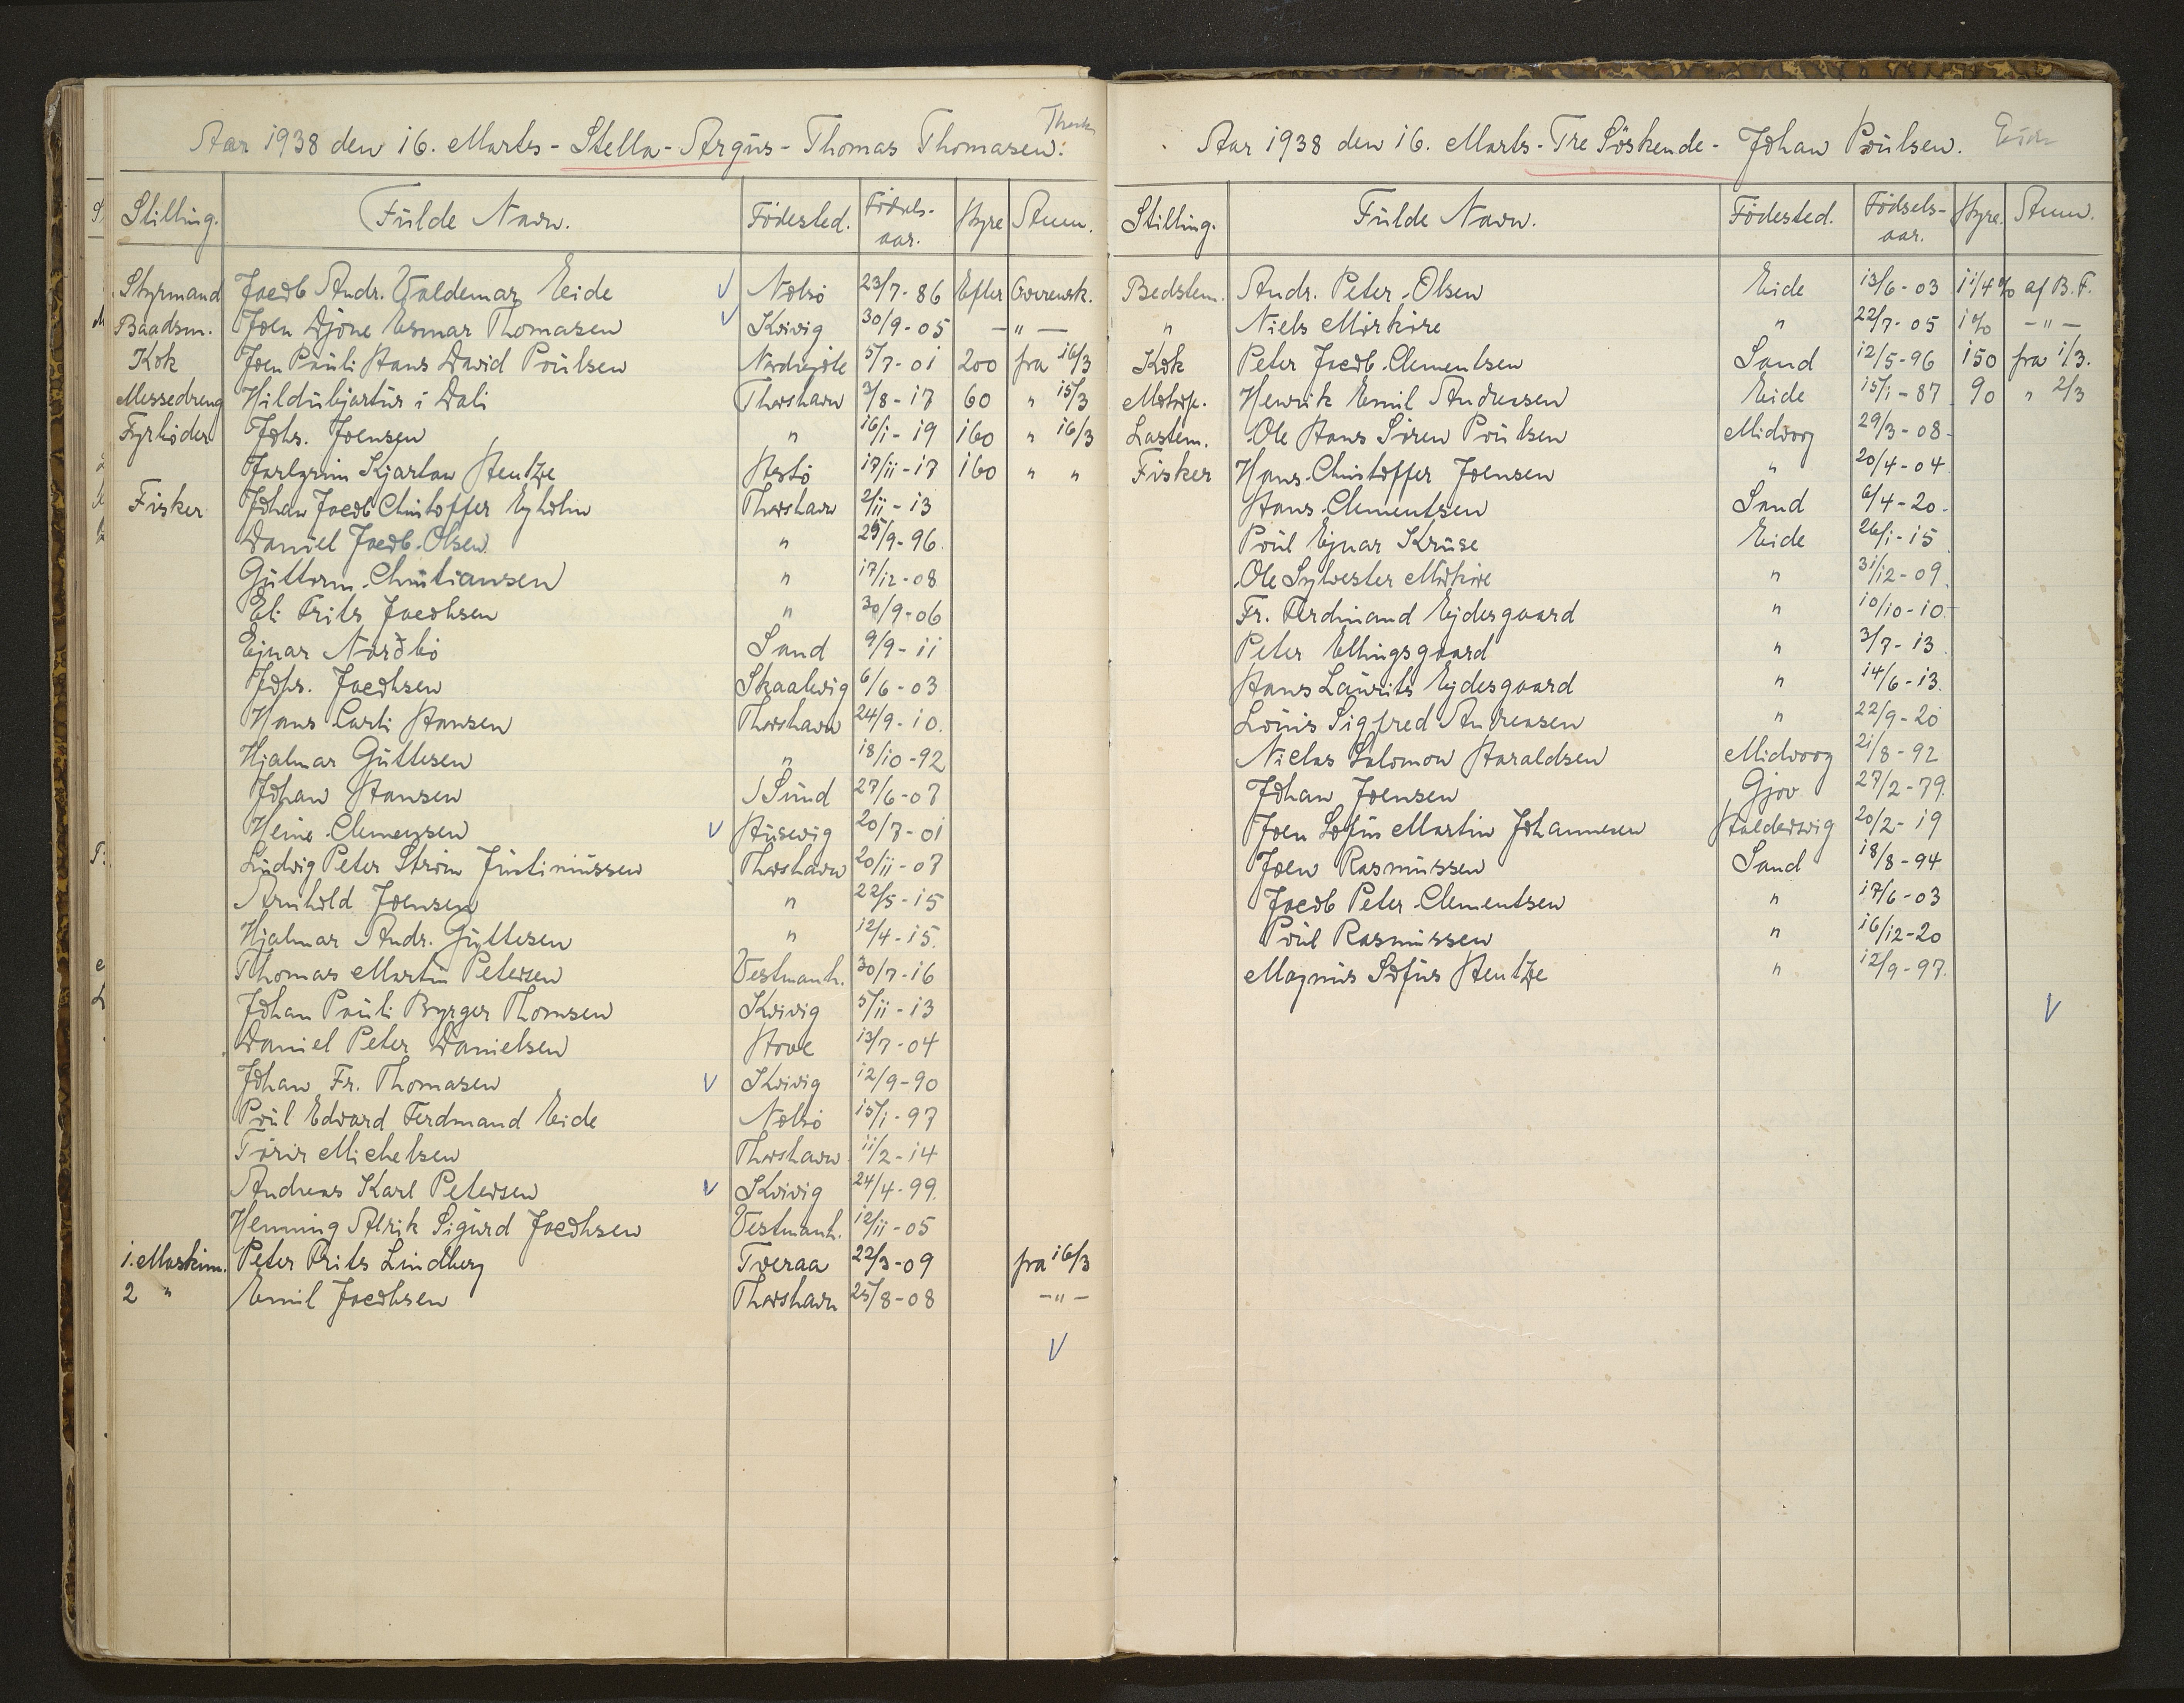 Aar 1938 den 16. Marts - Stella-Argus - Thomas Thomasen.
Stilling. Fulde Navn. Födested. Födsels-aar. Hyre Anm.
Styrmand Jacob Andr. Valdemar Eide V Nolsö 23/7-86 Efter Overensk.
Baadsm. Joen Djone Esmar Thomasen V Kvivig 30/9-05 - " -
Kok Joen Pauli Hans David Poulsen Nordragöte 5/7-01 200 fra 16/3
Messedreng Hildubjartur i Dali Thorshavn 3/8-17 60 " 15/3
Fyrböder Johs. Joensen " 16/1-19 160 " 16/3
Jarlgrim Kjartan Hentze Hestö 17/11-17 160 " "
Fisker Johan Jacob Christoffer Eyholm Thorshavn 2/11-13
Daniel Jacob Olsen " 25/9-96
Guttorm Christiansen " 17/12-08
Eli Frits Jacobsen " 30/9-06
Ejnar Norðbö Sand 9/9-11
Johs. Jacobsen Skaalevig 6/6-03
Hans Carli Hansen Thorshavn 24/9-10.
Hjalmar Guttesen " 18/10-92
Johan Hansen Sund 27/6-07
Heine Clementsen V Husevig 20/7-01
Ludvig Peter Ström Justinussen Thorshavn 20/11-07
Arnhold Joensen " 22/5-15
Hjalmar Andr. Guttesen " 12/4-15.
Thomas Martin Petersen Vestmanh. 30/7-16
Johan Pauli Byrger Thomsen Kvivig 5/11-13
Daniel Peter Danielsen Hove 13/7-04
Johan Fr. Thomasen V Kvivig 12/9-90
Poul Edvard Ferdinand Eide Nolsö 15/1-97
Torir Michelsen Thorshavn 11/2-14
Andreas Karl Petersen V Kvivig 24/4-99.
Henning Alrik Sigurd Jacobsen Vestmanh. 12/11-05
1. Maskinm. Peter Frits Lindberg Tveraa 22/3-09 fra 16/3
2 " Emil Jacobsen Thorshavn 25/8-08 - " -
V
Aar 1938 den 16. Marts - Tre Söskende - Johan Poulsen.
Stilling. Fulde Navn. Födested. Födsels-aar. Hyre. Anm.
Bedstem. Andr. Peter Olsen Eide 13/6-03 1 1/4 % af B.F.
" Niels Mörköre " 22/7-05 1% - " -
Kok Peter Jacob Clementsen Sand 12/5-96 150 fra 1/3.
Motorp. Henrik Emil Andreasen Eide 15/1-87 90 " 2/3
Lastem. Ole Hans Sören Poulsen Midvaag 29/3-08
Fisker Hans Christoffer Joensen " 20/4-04
Hans Clementsen Sand 6/4-20
Poul Ejnar Kruse Eide 26/1-15
Ole Sylvester Mörköre " 31/12-09
Fr. Ferdinand Ejdesgaard " 10/10-10
Peter Ellingsgaard " 3/7-13
Hans Laurits Ejdesgaard " 14/6-13.
Louis Sigfred Andreasen " 22/9-20
Niclas Salomon Haraldsen Midvaag 21/8-92
Johan Joensen Gjov 27/2-79.
Joen Sofus Martin Johannesen Haldersvig 20/2-19
Joen Rasmussen Sand 18/8-94
Jacob Peter Clementsen " 17/6-03
Poul Rasmussen " 16/12-20
Magnus Sofus Hentze " 12/9-97.
V